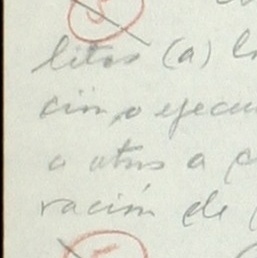 litos (a) l
ción, o ejecu
a otros a c
ración de (